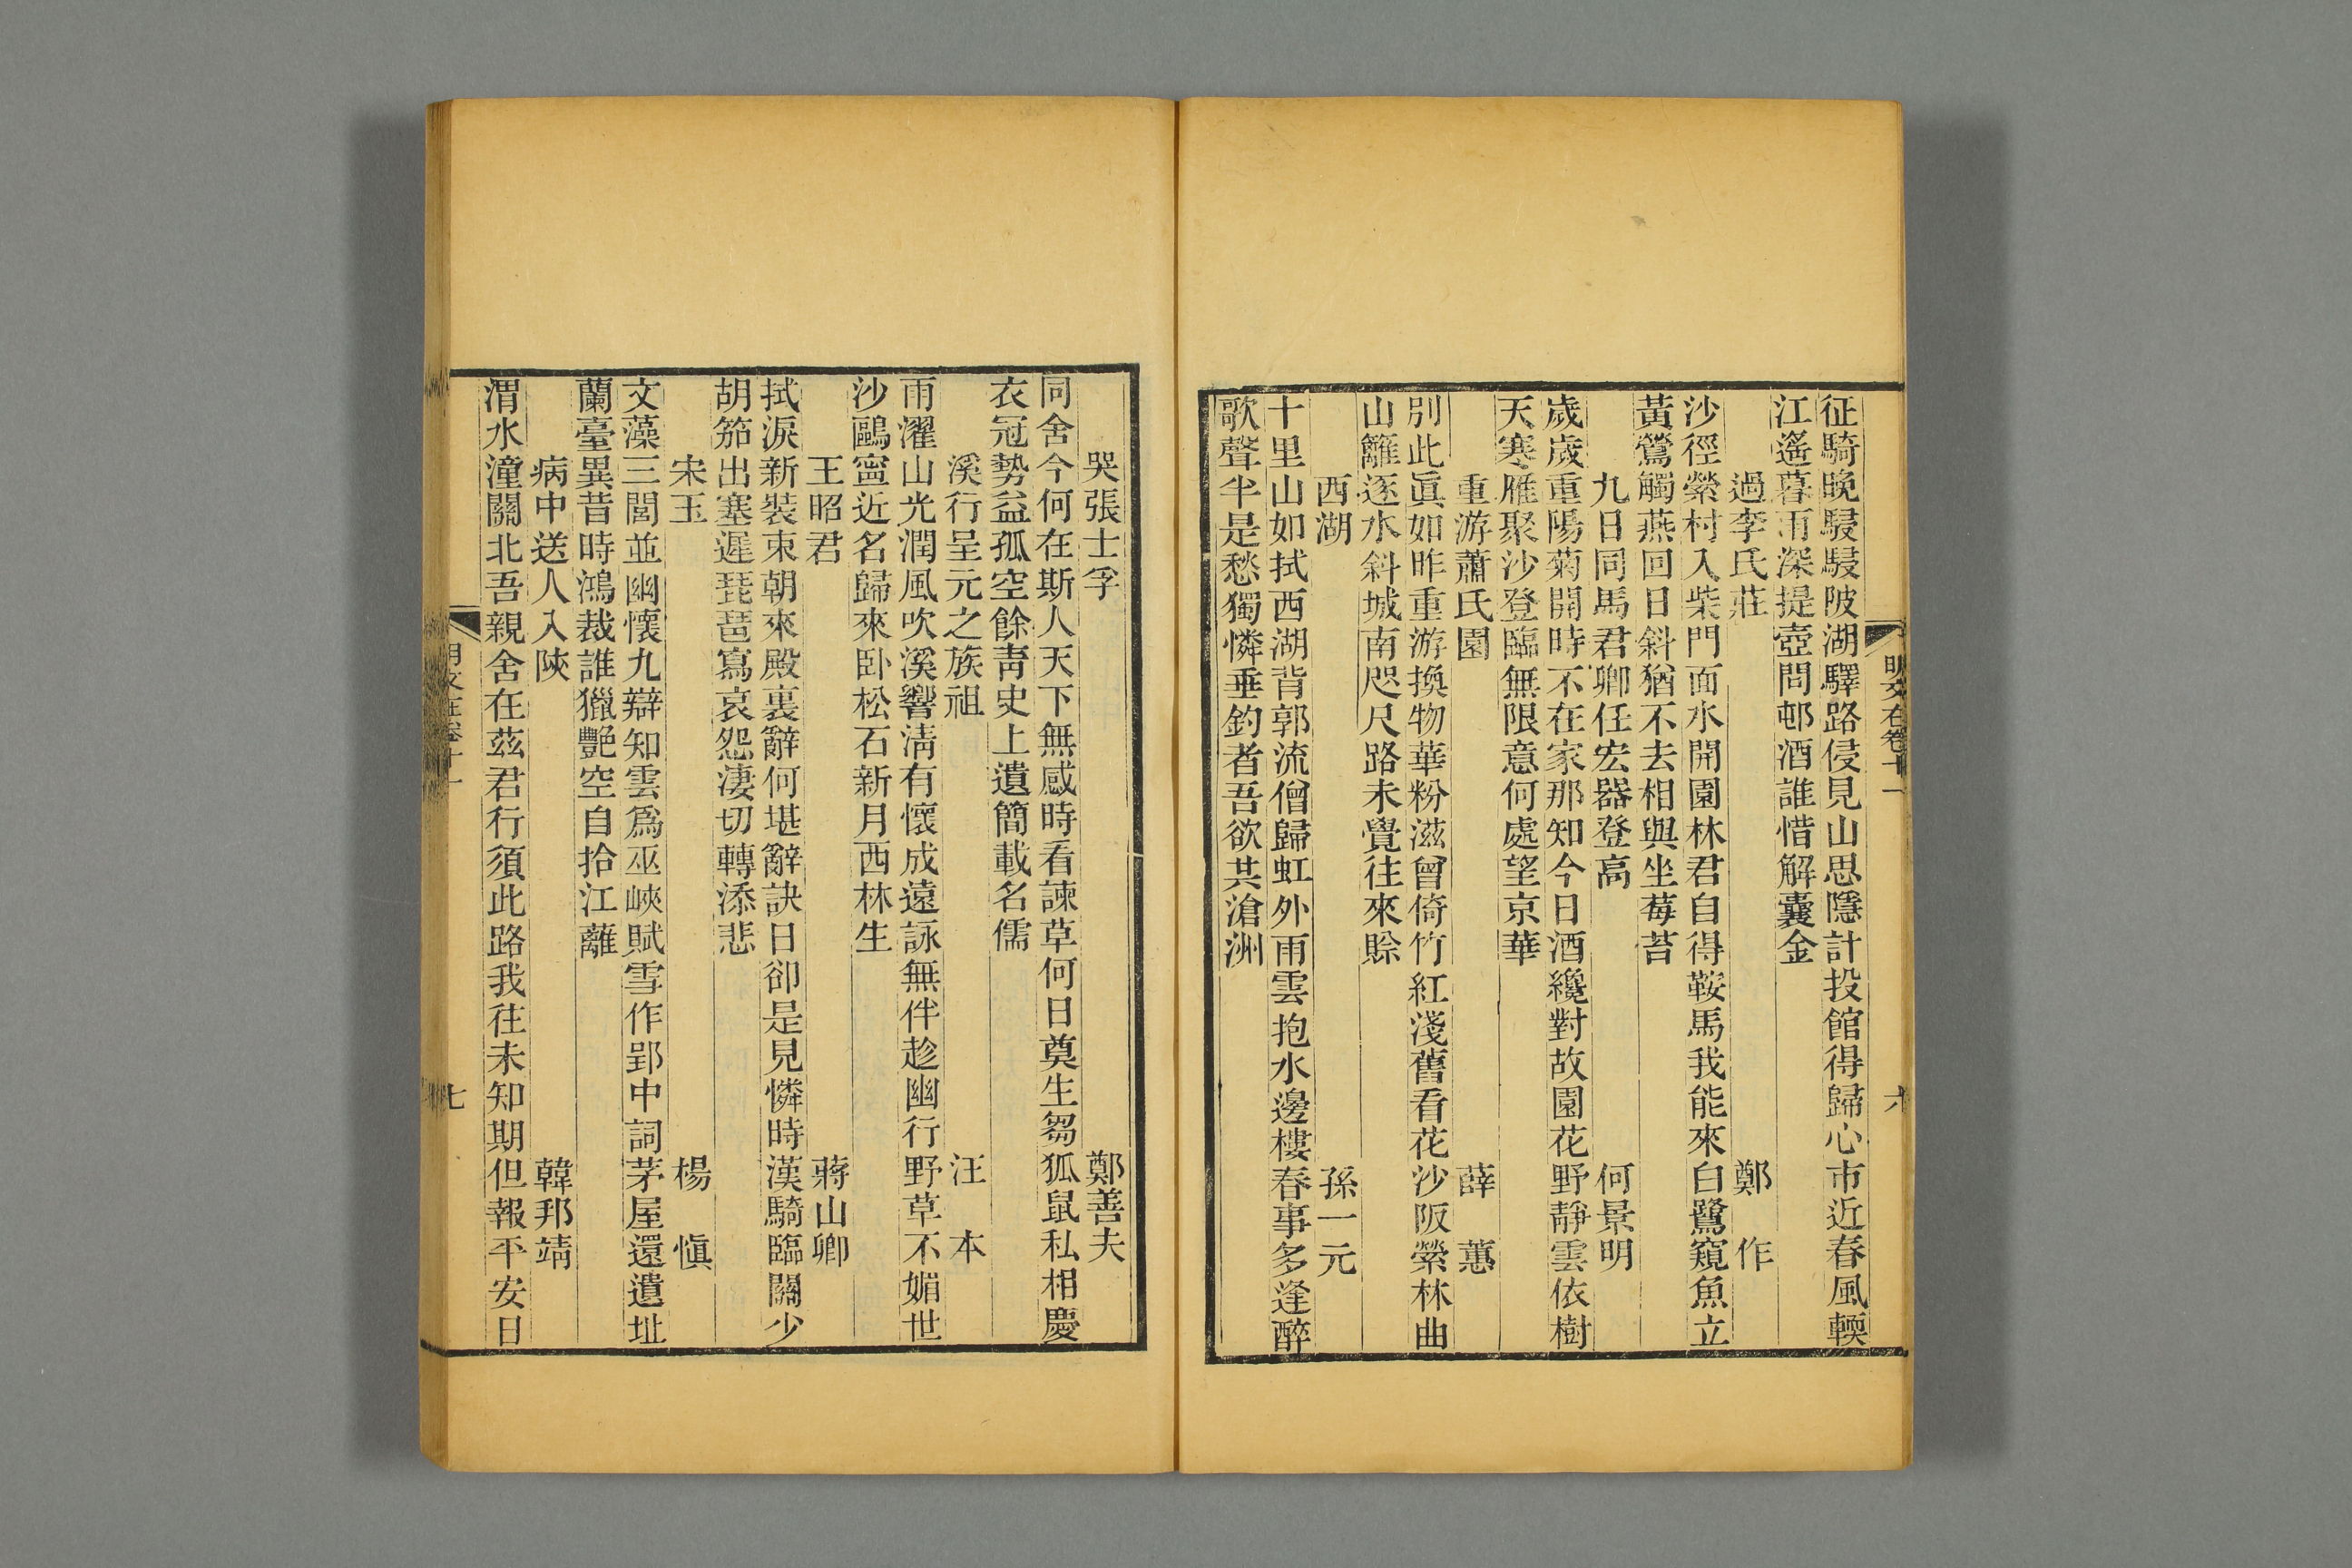 征騎晚駸駸陂湖驛路侵見山思隱計投館得歸心市近春風輭
江遙暮雨深提壺問邨酒誰惜解囊金
過李氏莊 鄭作
沙徑縈村入柴門面水開園林君自得鞍馬我能來白鷺窺魚立
黃鶯觸燕回日斜猶不去相與坐莓苔
九日同馬君卿任宏器登高 何景明
歲歲重陽菊開時不在家那知今日酒纔對故園花野靜雲依樹
天寒雁聚沙登臨無限意何處望京華
重游蕭氏園 薛蕙
別此眞如昨重游換物華粉滋曾倚竹紅淺舊看花沙阪縈林曲
山籬逐水斜城南咫尺路未覺往來賒
西湖 孫一元
十里山如拭西湖背郭流僧歸虹外雨雲抱水邊樓春事多逢醉
歌聲半是愁獨憐垂釣者吾欲共滄洲
明文在卷十一 六
哭張士孚 鄭善夫
同舍今何在斯人天下無感時看諫草何日奠生芻狐鼠私相慶
衣冠勢益孤空餘靑史上遺簡載名儒
溪行呈元之族祖 汪本
雨濯山光潤風吹溪響淸有懷成遠詠無伴趁幽行野草不媚世
沙鷗寍近名歸來卧松石新月西林生
王昭君 蔣山卿
拭淚新裝束朝來殿裏辭何堪辭訣日卻是見憐時漢騎臨關少
胡笳出塞遲琵琶寫哀怨淒切轉添悲
宋玉 楊愼
文藻三閭並幽懷九辯知雲爲巫峽賦雪作郢中詞茅屋還遺址
蘭臺異昔時鴻裁誰獵豔空自拾江蘺
病中送人入陝 韓邦靖
渭水潼關北吾親舍在茲君行須此路我往未知期但報平安日
明文在卷十一 七